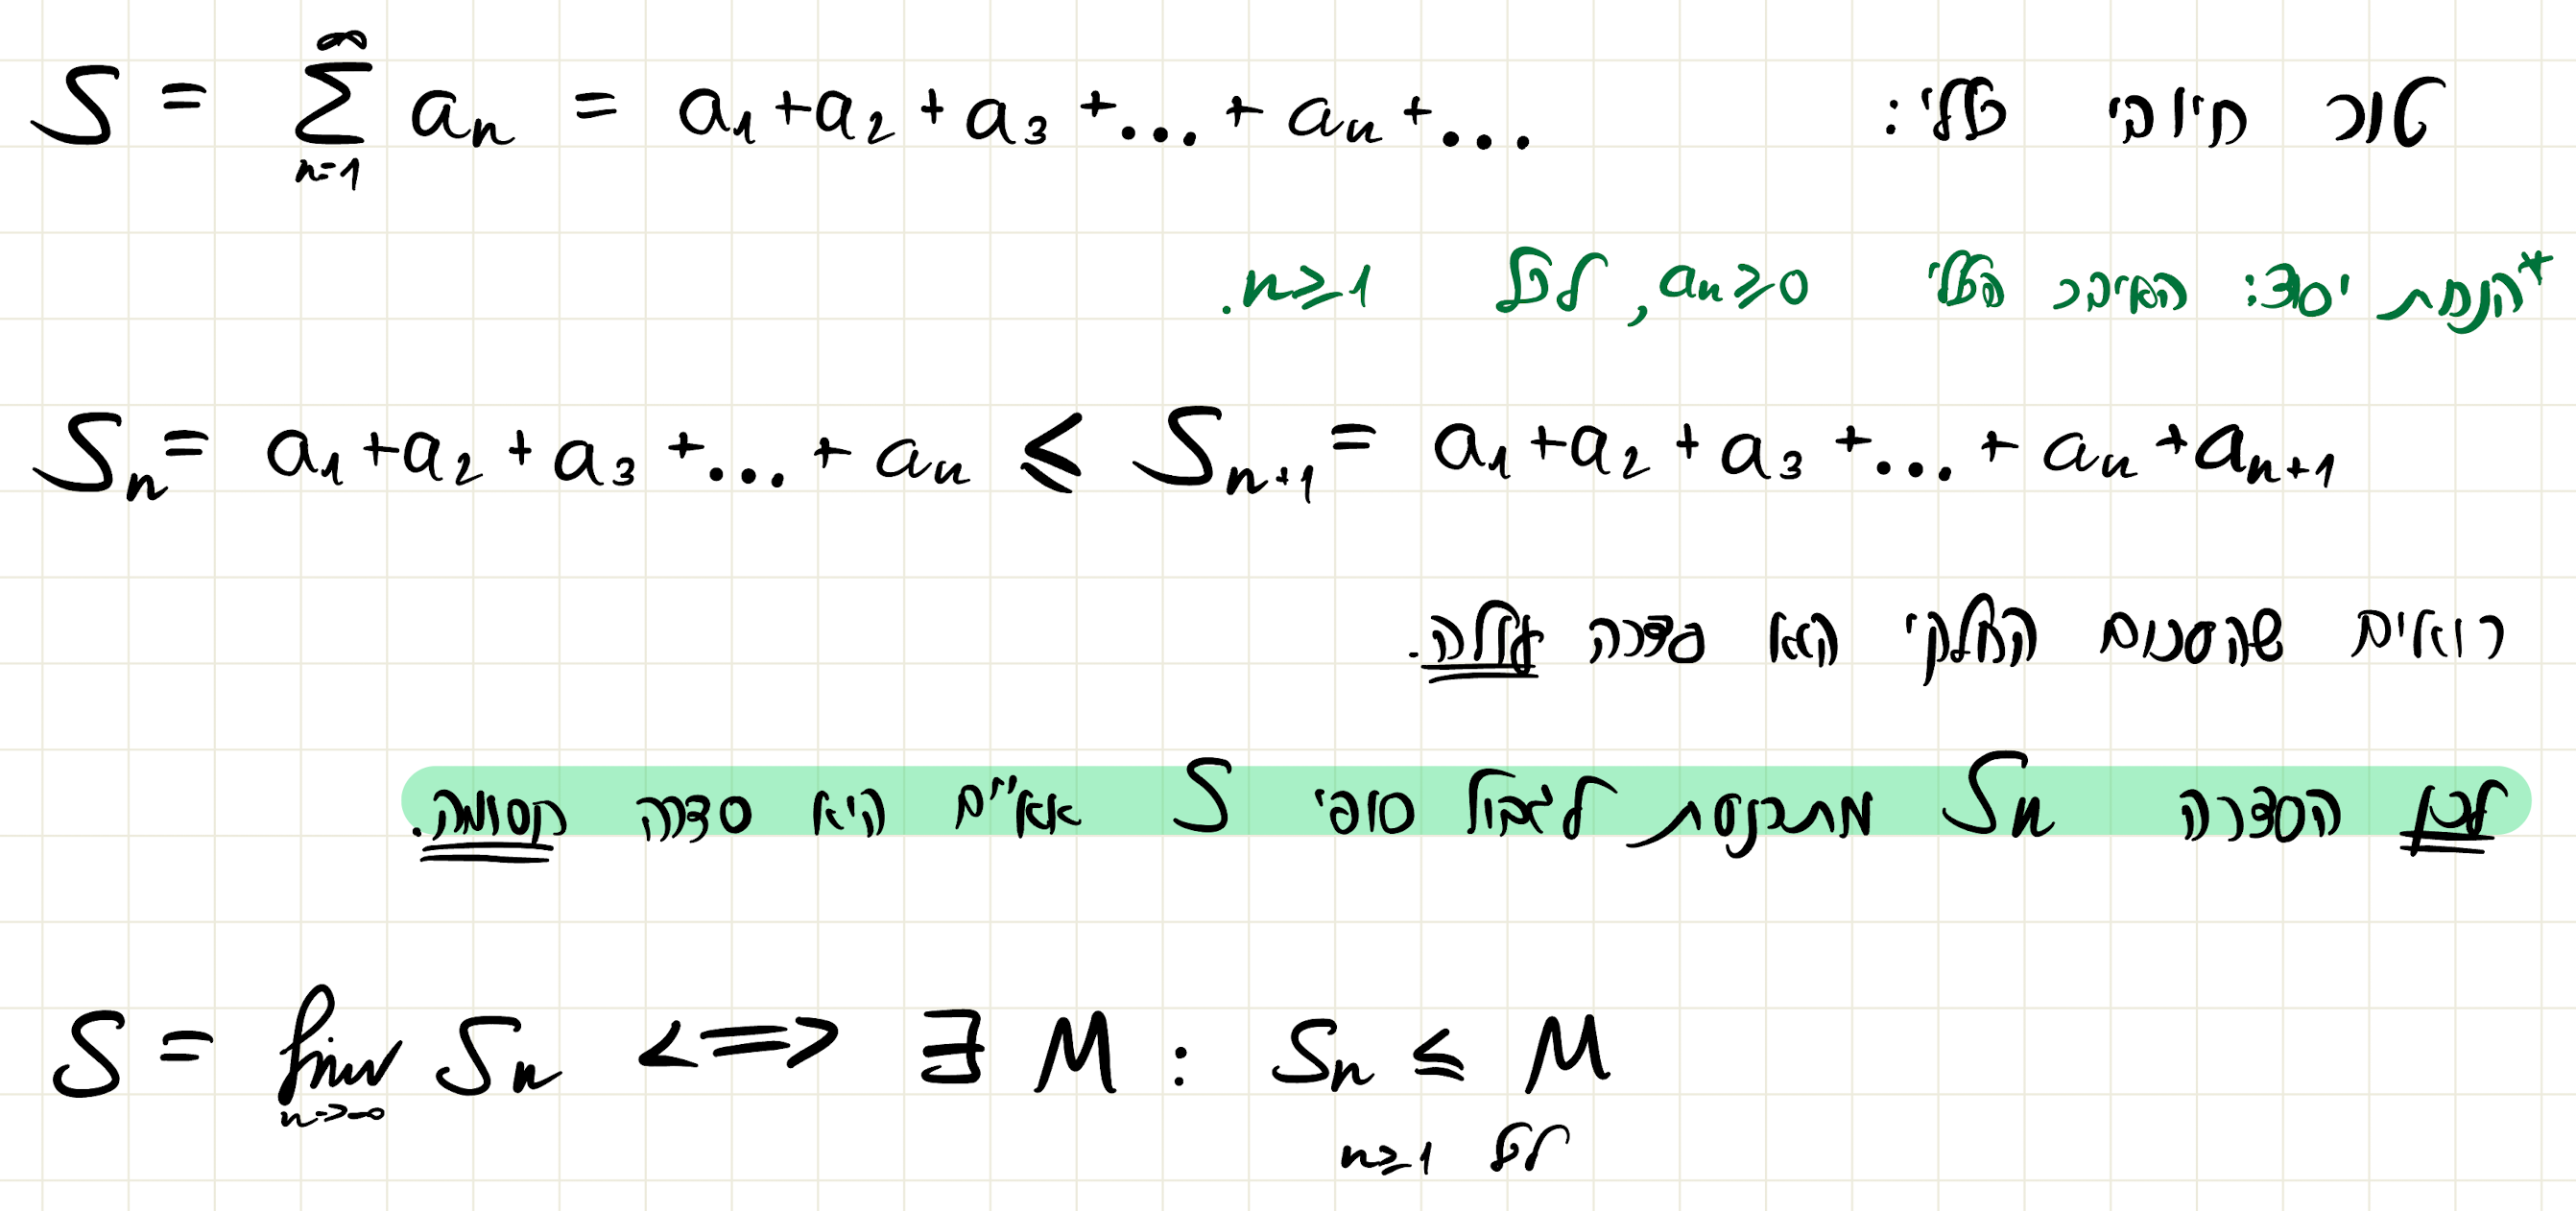 טור חיובי כללי: S = ∑_{n=1}^{∞} a_n = a_1 + a_2 + a_3 + ... + a_n + ...
*הנחת יסוד: האיבר הכללי a_n ≥ 0, לכל n ≥ 1.
S_n = a_1 + a_2 + a_3 + ... + a_n ≤ S_{n+1} = a_1 + a_2 + a_3 + ... + a_n + a_{n+1}
רואים שהסכום החלקי הוא סדרה עולה.
לכן הסדרה S_n מתכנסת לגבול סופי S אא"ם היא סדרה חסומה.
S = lim_{n->∞} S_n <=> ∃ M : S_n ≤ M
לכל n ≥ 1